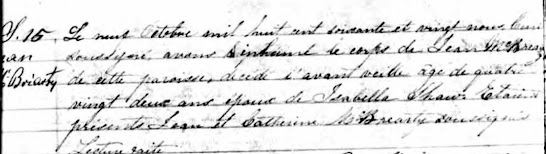 S. 15
Jean
McBrearty
Le neuf Octobre mil huit cent soixante et vingt nous Curé
soussigné, avons inhumé le corps de Jean McBrearty
de cette paroisse, décédé l'avant veille âgé de quatre
vingt deux ans époux de Isabella Shaw. Etaient
présents Jean et Catherine McBrearty soussignés
Lecture faite